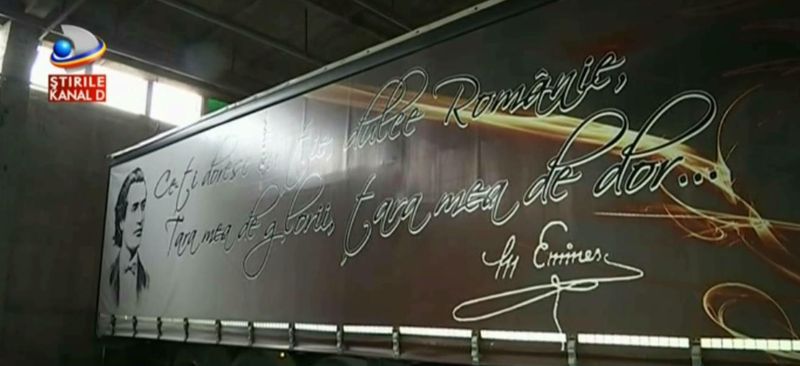 ȘTIRILE
KANAL D
Ce-ți doresc eu ție, dulce Românie,
Țara mea de glorii, țara mea de dor...
M Emines